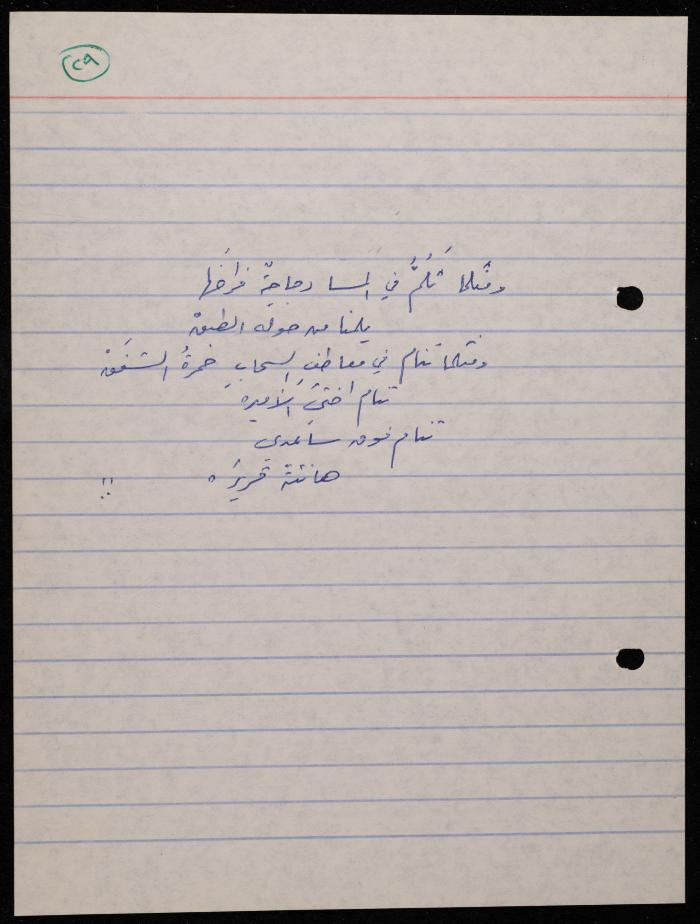 ٢٩
ومثلما تَلُمُّ في المسا دجاجةٌ فراخَها
يلمنا من حوله الطبقْ
ومثلما تنام في معاطفِ السحابِ خمرةُ الشفَقْ
تنام اختيَ الأميره
تنام فوق ساعدي
هانئة قريرَه !!